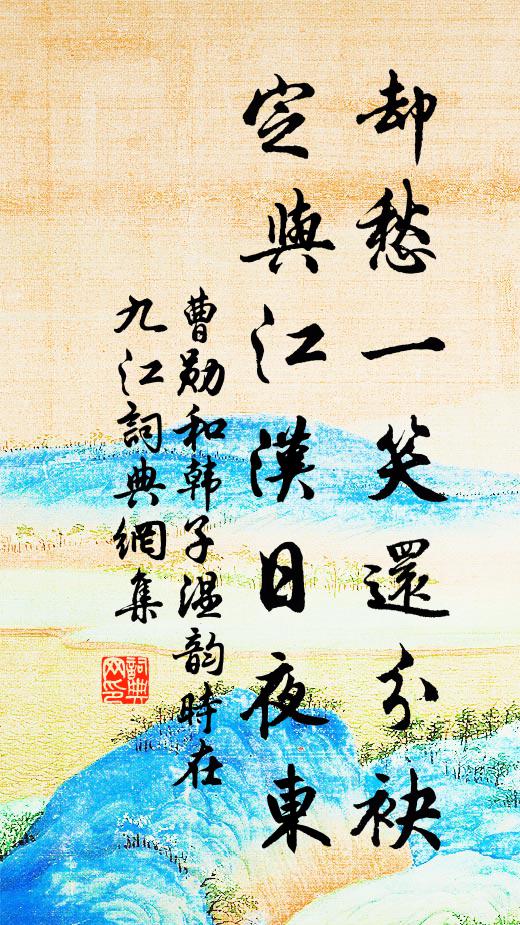 却愁一笑還分袂
定與江漢日夜東
曹勛和韩子温韵時在
九江詞典網集
詞典
网印